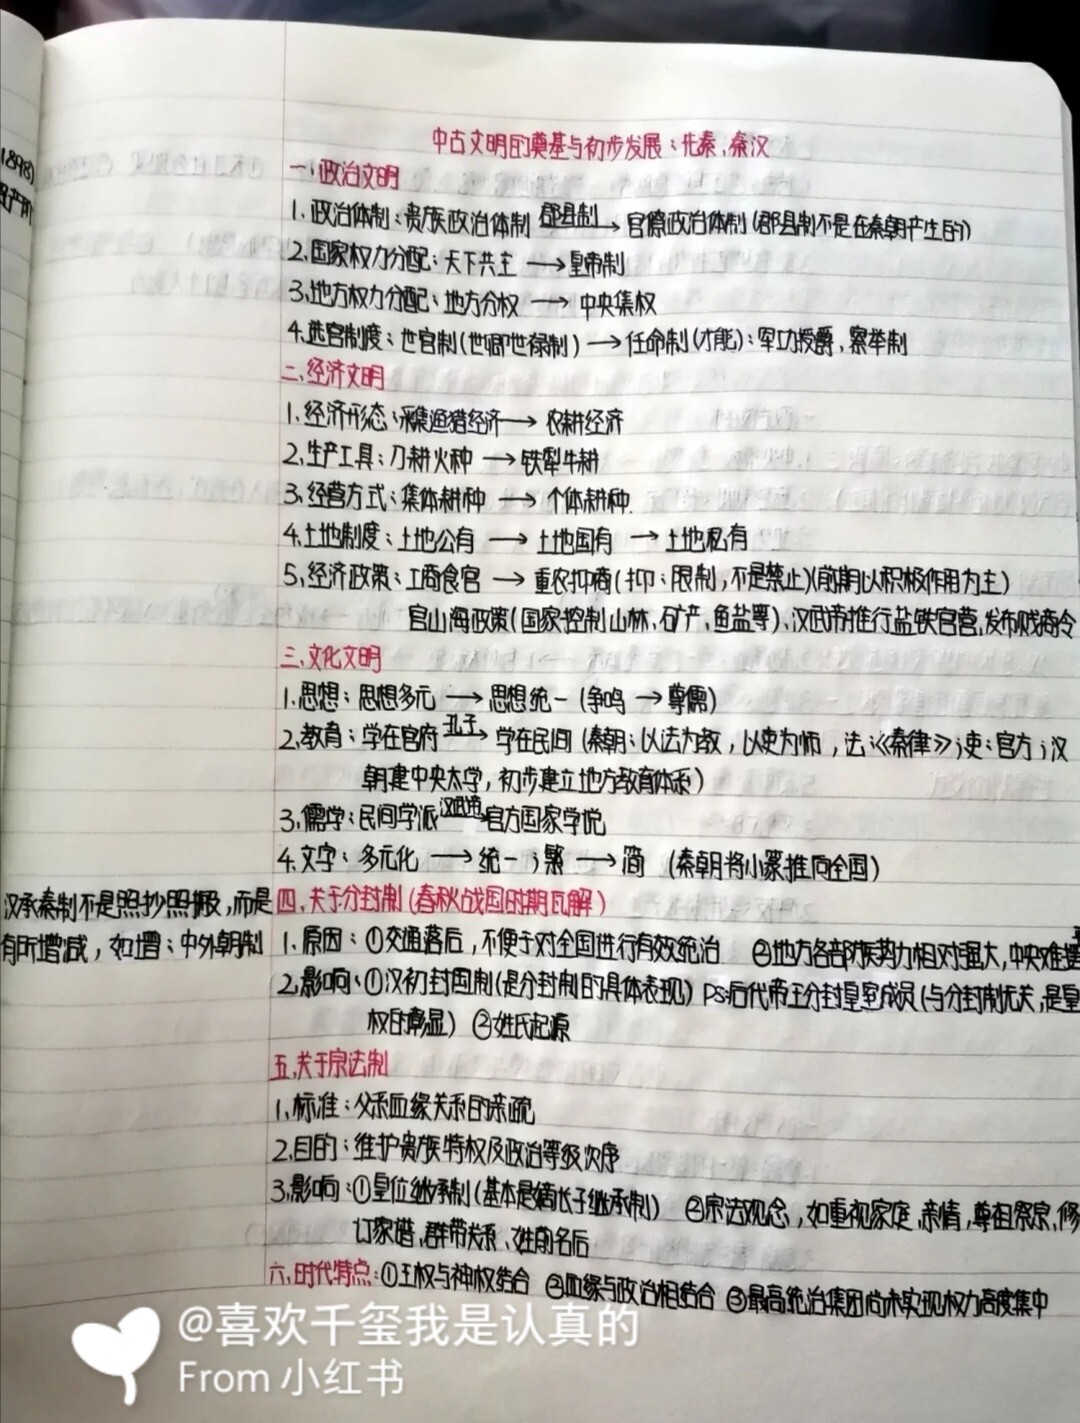 1898)
中古文明的奠基与初步发展:先秦,秦汉
一,政治文明
1.政治体制:贵族政治体制 郡县制→ 官僚政治体制(郡县制不是在秦朝产生的)
2.国家权力分配:天下共主 → 皇帝制
3.地方权力分配:地方分权 → 中央集权
4.选官制度:世官制(世卿世禄制) → 任命制(才能):军功授爵,察举制
二、经济文明
1.经济形态:采集渔猎经济 → 农耕经济
2.生产工具:刀耕火种 → 铁犁牛耕
3.经营方式:集体耕种 → 个体耕种.
4.土地制度:土地公有 → 土地国有 → 土地私有
5.经济政策:工商食官 → 重农抑商(抑:限制,不是禁止)(前期以积极作用为主)
官山海政策(国家控制山林、矿产、鱼盐等)、汉武帝推行盐铁官营,发布贱商令
三、文化文明
1.思想:思想多元 → 思想统一(争鸣 → 尊儒)
2.教育:学在官府 孔子→ 学在民间(秦朝:以法为教,以吏为师,法:《秦律》;吏:官方;汉
朝建中央太学,初步建立地方教育体系)
3.儒学:民间学派 汉武帝→ 官方国家学说
4.文字:多元化 → 统一;繁 → 简 (秦朝将小篆推向全国)
汉承秦制不是照抄照搬,而是
有所增减,如增:中外朝制
四、关于分封制(春秋战国时期瓦解)
1.原因:①交通落后,不便于对全国进行有效统治 ②地方各部族势力相对强大,中央难
2.影响:①汉初封国制(是分封制的具体表现) PS:后代帝王分封皇室成员(与分封制无关,是皇
权的彰显) ②姓氏起源
五,关于宗法制
1.标准:父系血缘关系的亲疏
2.目的:维护贵族特权及政治等级次序
3.影响:①皇位继承制(基本是嫡长子继承制) ②宗法观念,如重视家庭,亲情,尊祖祭宗,修
订家谱,群带关系、姓前名后
六、时代特点:①王权与神权结合 ②血缘与政治相结合 ③最高统治集团尚未实现权力高度集中
@喜欢千玺我是认真的
From 小红书